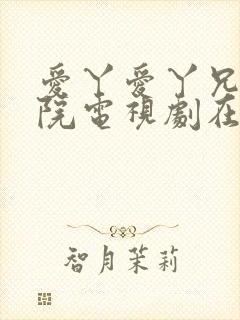 愛丫愛丫兄
院電視劇在
智月茉莉